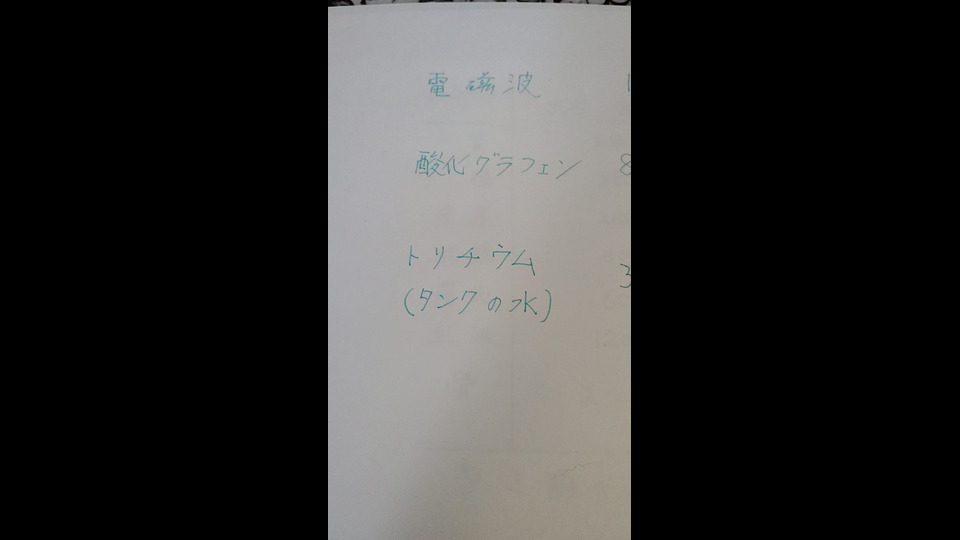 電磁波 1
酸化グラフェン 8
トリチウム 3
(タンクの水)